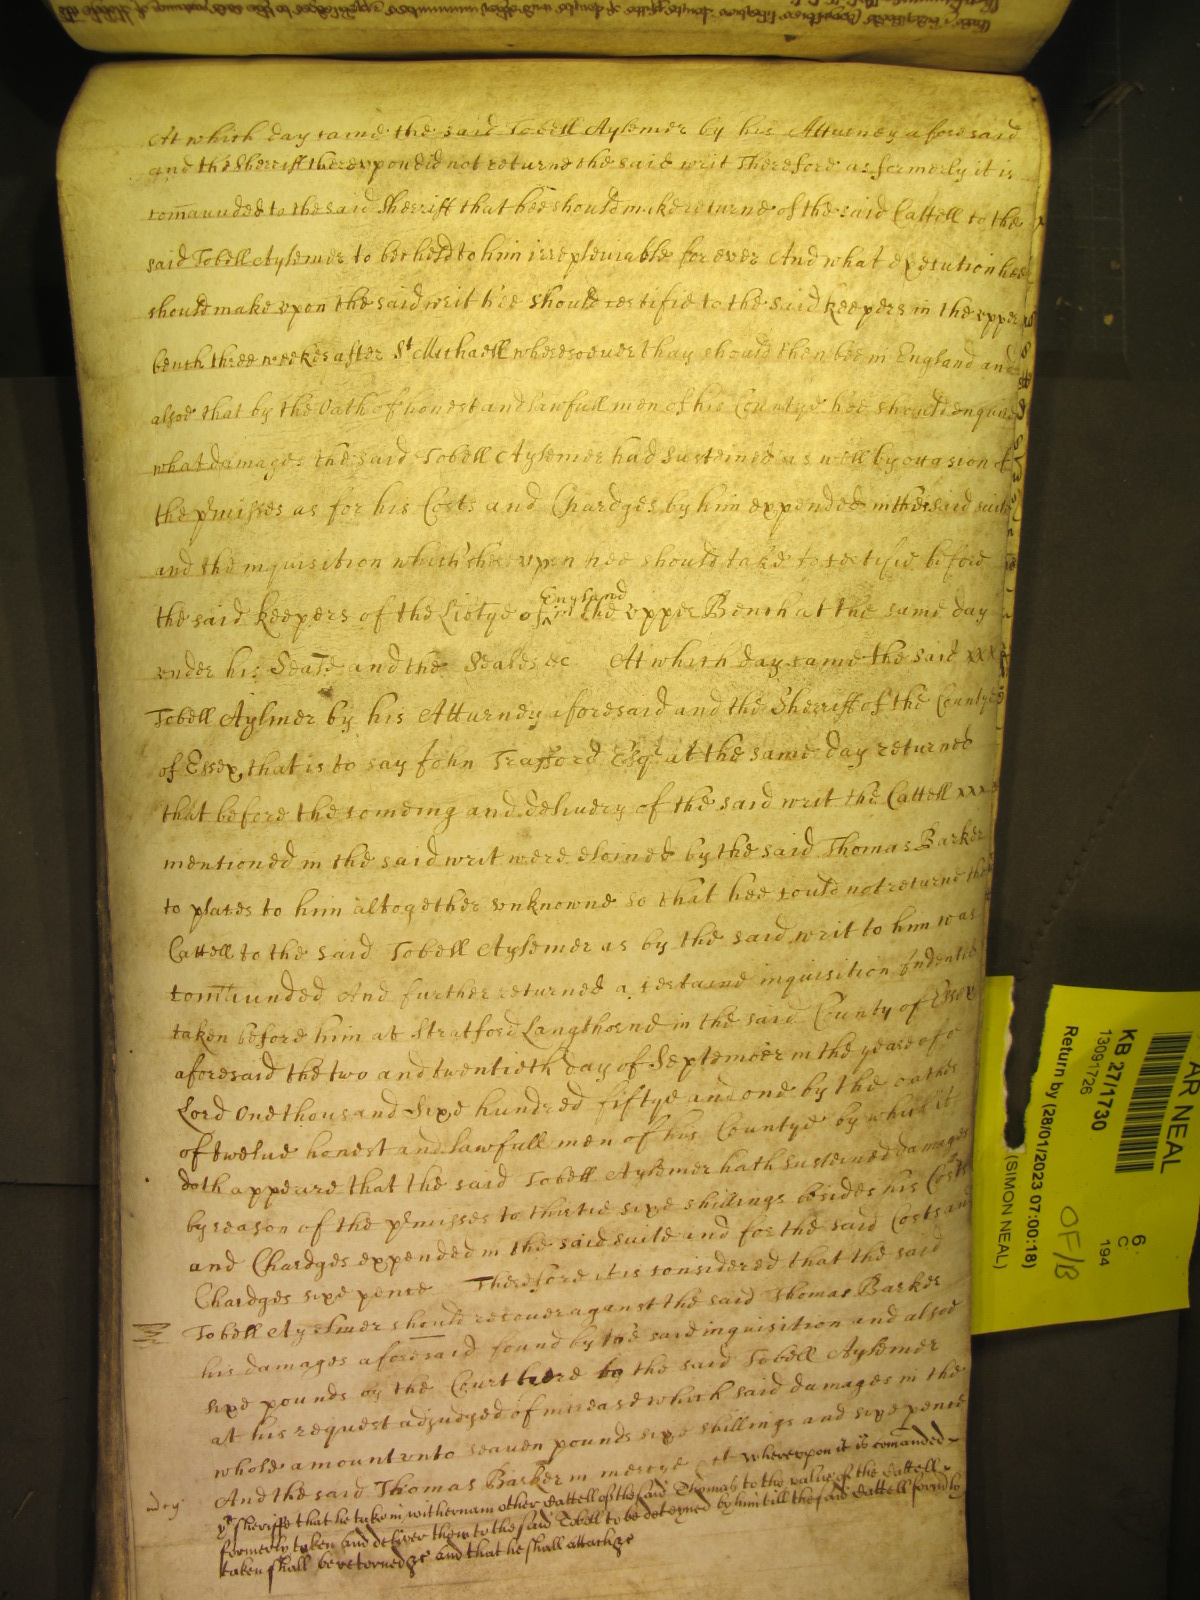 At which day came the said Tobell Aylemer by his Atturney aforesaid
and the Sherriff therevpon did not returne the said writ Therefore as formerly it is
comaunded to the said Sherriff that hee should make returne of the said Cattell to the
said Tobell Aylemer to bee held to him irrepleviable for ever And what execution hee
should make vpon the said writ hee should certifie to the said keepers in the vpper
bench three weekes after St Michaell wheresoever thay should then bee in England and
alsoe that by the Oath of honest and lawfull men of his Countye hee should enquire
what damages the said Tobell Aylemer had susteined as well by occasion of
the pmisses as for his Costs and Chardges by him expended in the said suite
and the inquisition which therevpon hee should take to certifie before
England
the said keepers of the Libtye of in the vpper Bench at the same day
vnder his Seale and the Seales &c At which day came the said xxx
Tobell Aylmer by his Atturney aforesaid and the Sherriff of the Countye
of Essex, that is to say John Trafford Esqr at the same day returned
that before the comeing and delivery of the said writ the Cattell xxx
mentioned in the said writ were eloined by the said Thomas Barker
to places to him altogether vnknowne so that hee could not returne the
Cattell to the said Tobell Aylemer as by the said writ to him was
comaunded And further returned a certaine inquisition Indented
taken before him at Stratford Langthorne in the said County of Essex
aforesaid the two and twentieth day of September in the yeare of o
Lord One thousand Sixe hundred fiftye and one by the oathes
of twelve honest and lawfull men of his Countye by which it
doth appeare that the said Tobell Aylemer hath susteined damages
by reason of the pmisses to thirtie sixe shillings besides his Costs
and Chardges expended in the said suite and for the said Costs and
Chardges sixe pence Therefore it is considered that the said
Tobell Aylmer should recover against the said Thomas Barker
his damages aforesaid found by the said inquisition and alsoe
sixe pounds by the Court here to the said Tobell Aylemer
at his request adjudged of increase which said damages in the
whole amount vnto seaven pounds sixe shillings and sixe pence
And the said Thomas Barker in mercye &c Wherevpon it is comanded
mcy
ye sheriffe that he take in withernam other Cattell of the said Thomas to the value of the Cattell
formerly taken and deliver them to the said Tobell to be deteyned by him till the said Cattell formerly
taken shall be retorned &c and that he shall attach &c
AR NEAL
KB 27/1730
13091726
Return by (28/01/2023 07:00:18)
(SIMON NEAL)
6
C
194
OF/B